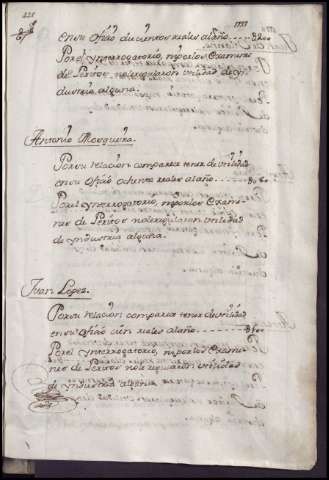 en su ofizio ducientos reales al año ---- 200
Por el ynterrogatorio, ni por los Examenes
de Peritos no le regularon utilidad de yn
dustria alguna.
Antonio Mosquera.
Por su relazion compareze tener de utilidad
en su ofizio ochenta reales al año ---- 80
Por el ynterrogatorio, ni por los Exame
nes de Peritos no le regularon utilidad
de yndustria alguna.
Juan Lopez.
Por su relazion compareze tener de utilidad
en su ofizio cien reales al año ---- 100
Por el ynterrogatorio, ni por los Exame
nes de Peritos no le regularon utilidad
de yndustria alguna